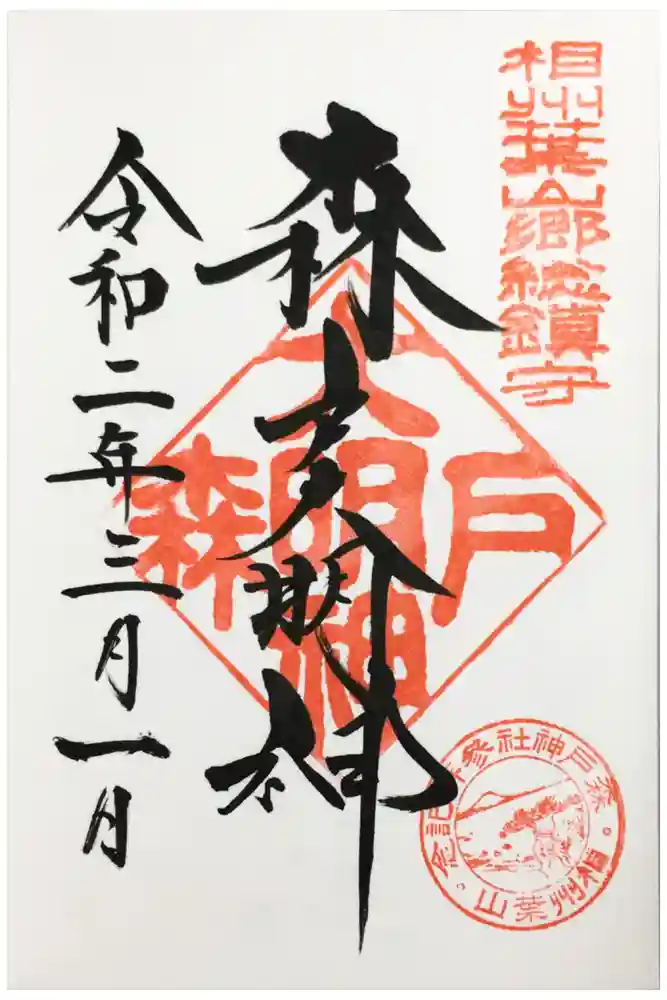 相州葉山郷総鎮守
森戸大明神
令和二年三月一月
森戸大明神
森戸神社参拝記念
相州葉山